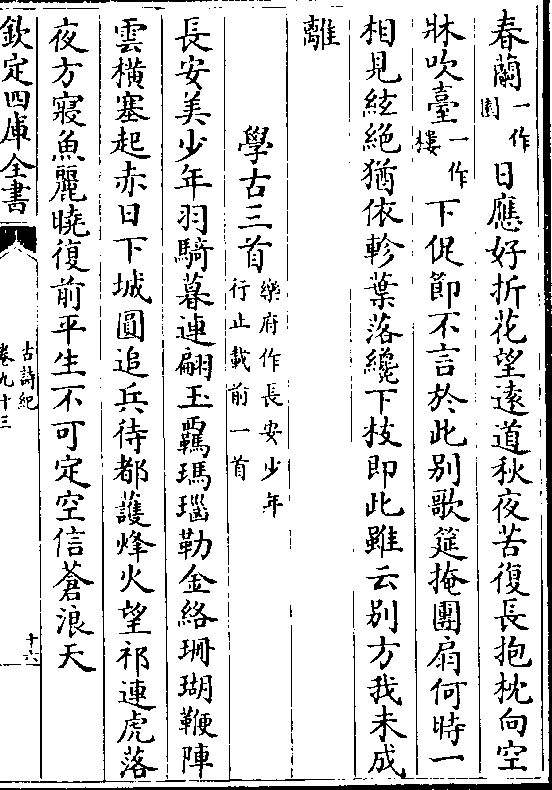 春蘭一作蘭日應好折花望遠道秋夜苦復長抱枕向空
牀吹臺一作樓下促節不言於此别歌筵掩團扇何時一
相見絃絶猶依軫葉落纔下枝即此雖云别方我未成
離
學古三首樂府作長安少年行止載前一首
長安美少年羽騎暮連翩玉羈瑪瑙勒金絡珊瑚鞭陣
雲横塞起赤日下城圓追兵待都護烽火望祁連虎落
夜方寢魚麗曉復前平生不可定空信蒼浪天
欽定四庫全書
古詩紀
卷九十三
十六